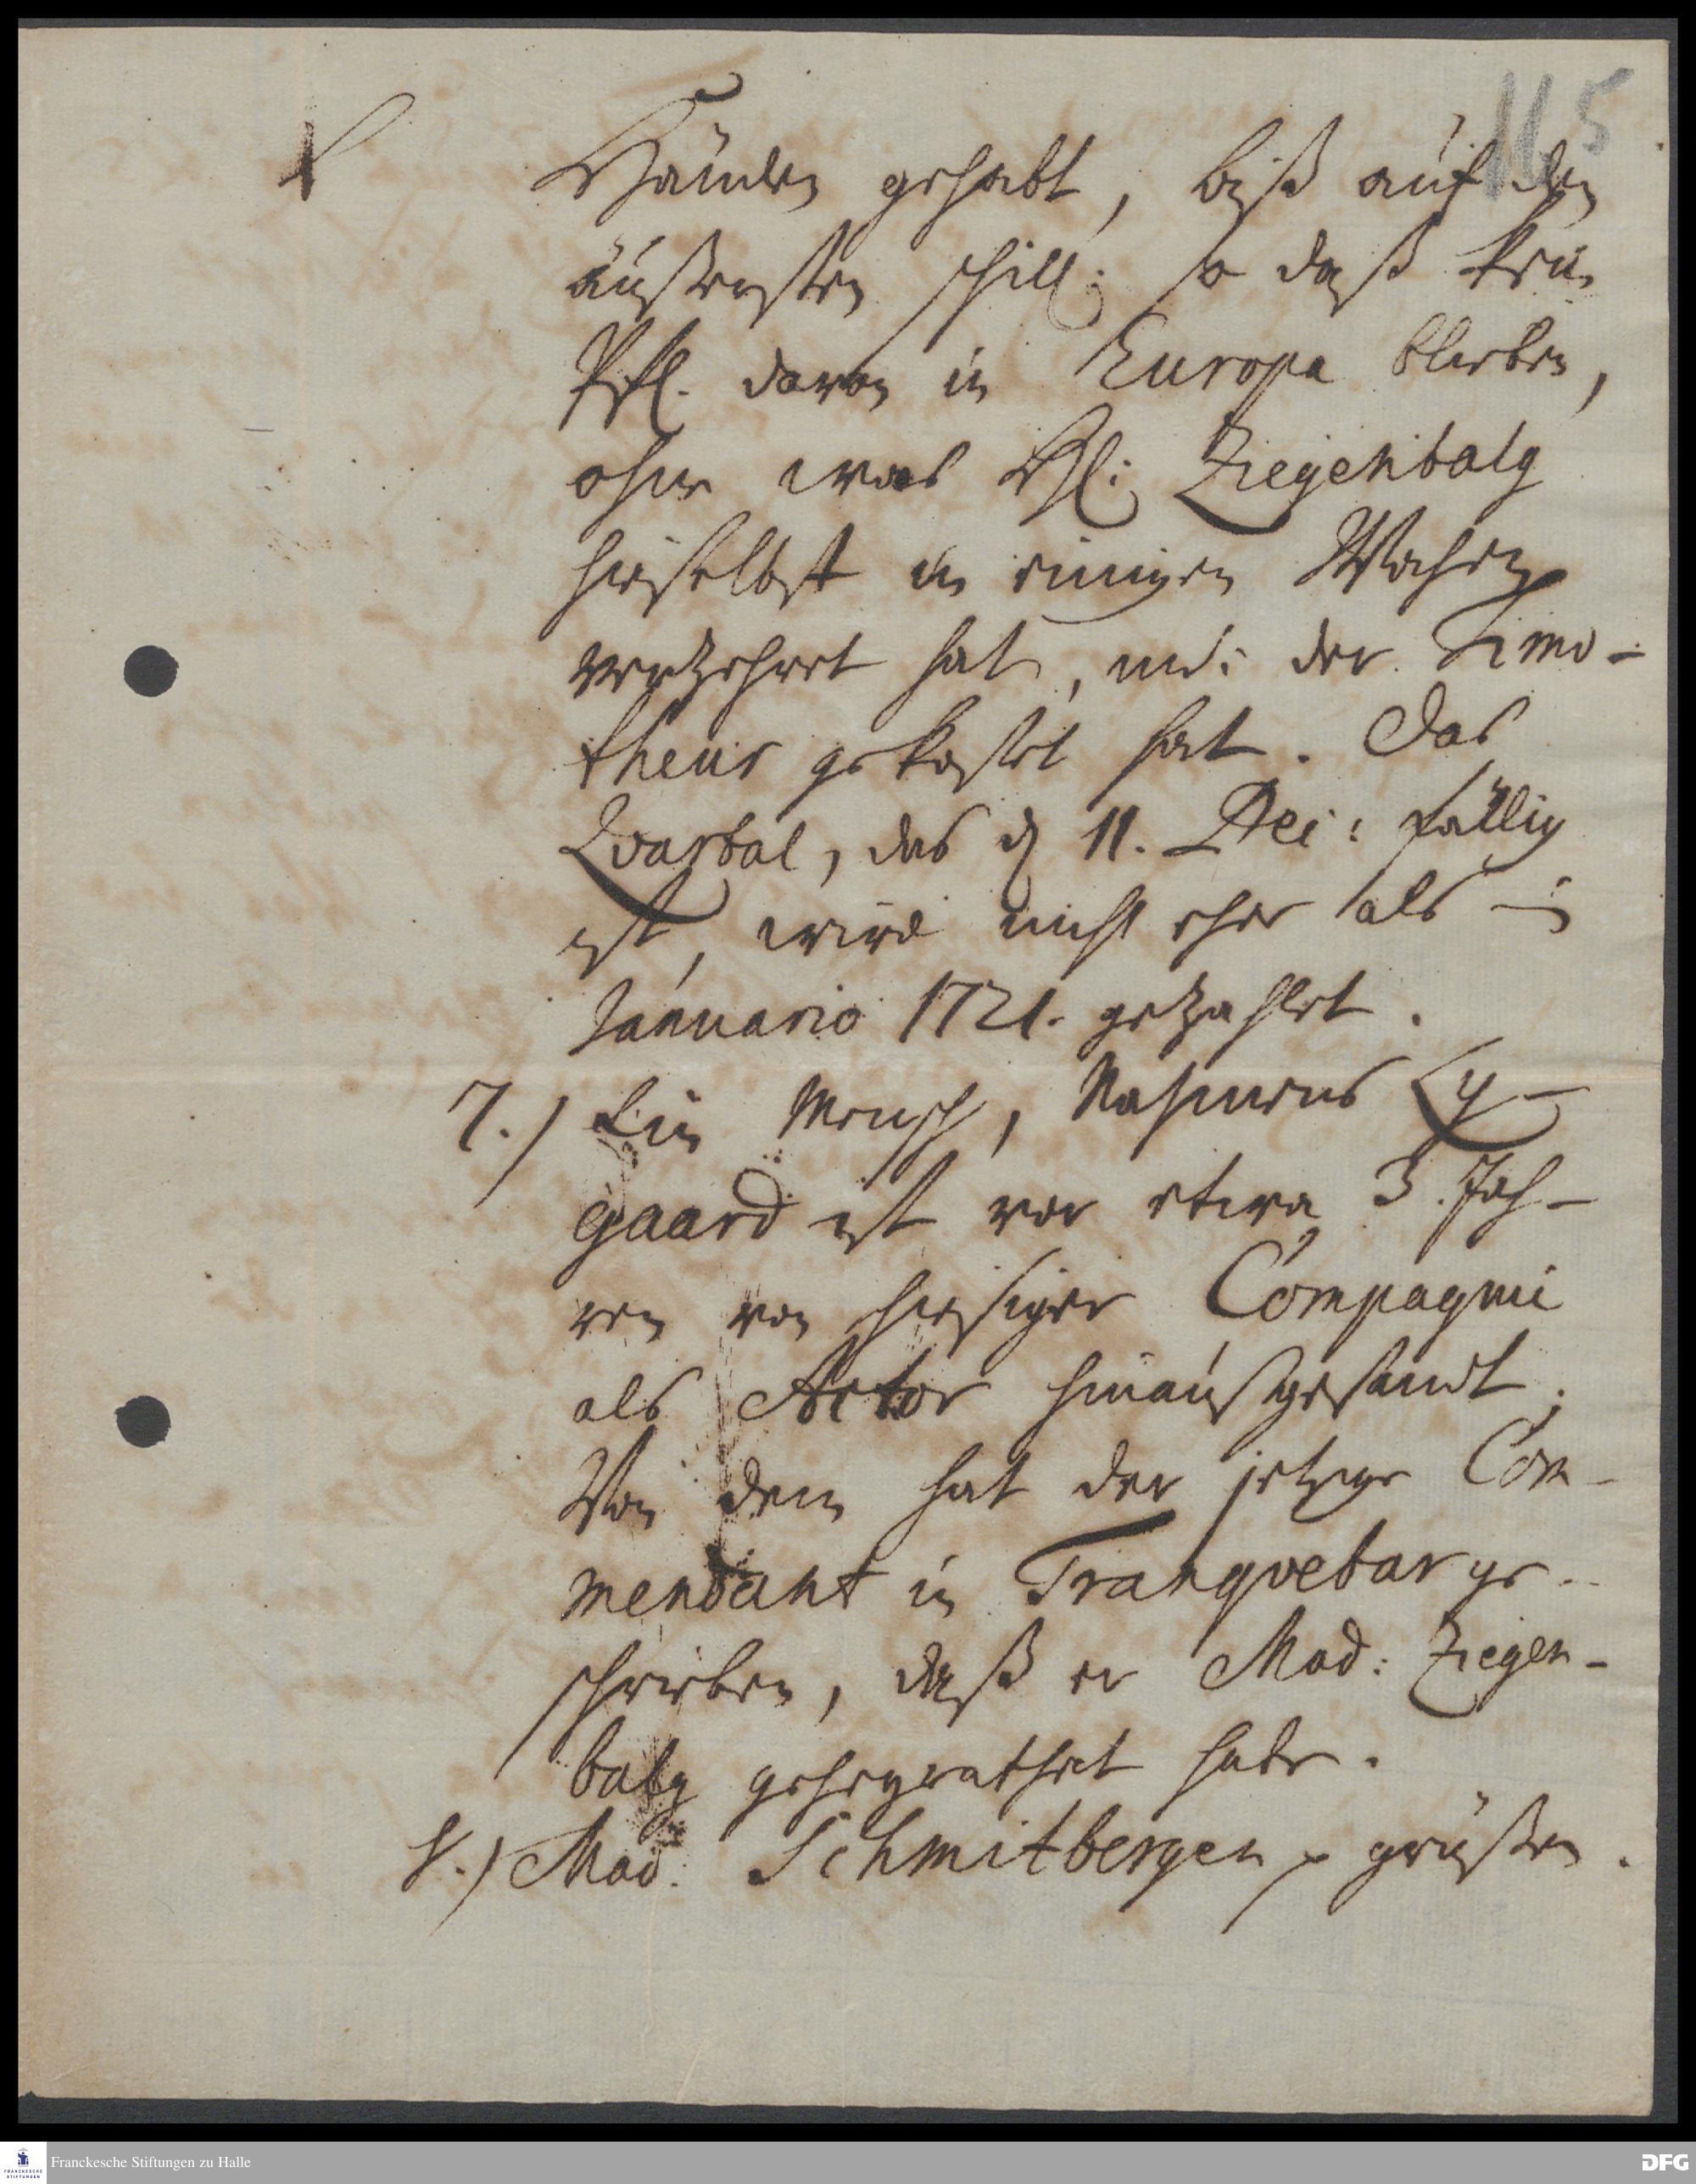 115
Händen gehabt, biß auf den
äußersten schill: so daß kein
Pf. davon in Europa blieben,
ohne was H: Ziegenbalg
hieselbst in einigen Wochen
verzehret hat, und der Timo-
theus gekostet hat. Das
Qvartal, das d 11. Dec: fällig
ist, wird nicht eher als in
Januario 1721. gezahlet.
7.) Ein Mensch, Nahmens Ly-
gaard ist vor etwa 3. Jah-
ren von hiesiger Compagnie
als hinausgesandt.
Von dem hat der jetzige Com-
mendant in Tranqvebar ge-
schrieben, daß er Mad: Ziegen-
balg geheyrathet habe.
8.) Mad. Schmitbergen grüßen.
Franckesche Stiftungen zu Halle
FRANCKESCHE
STIFTUNGEN
DFG